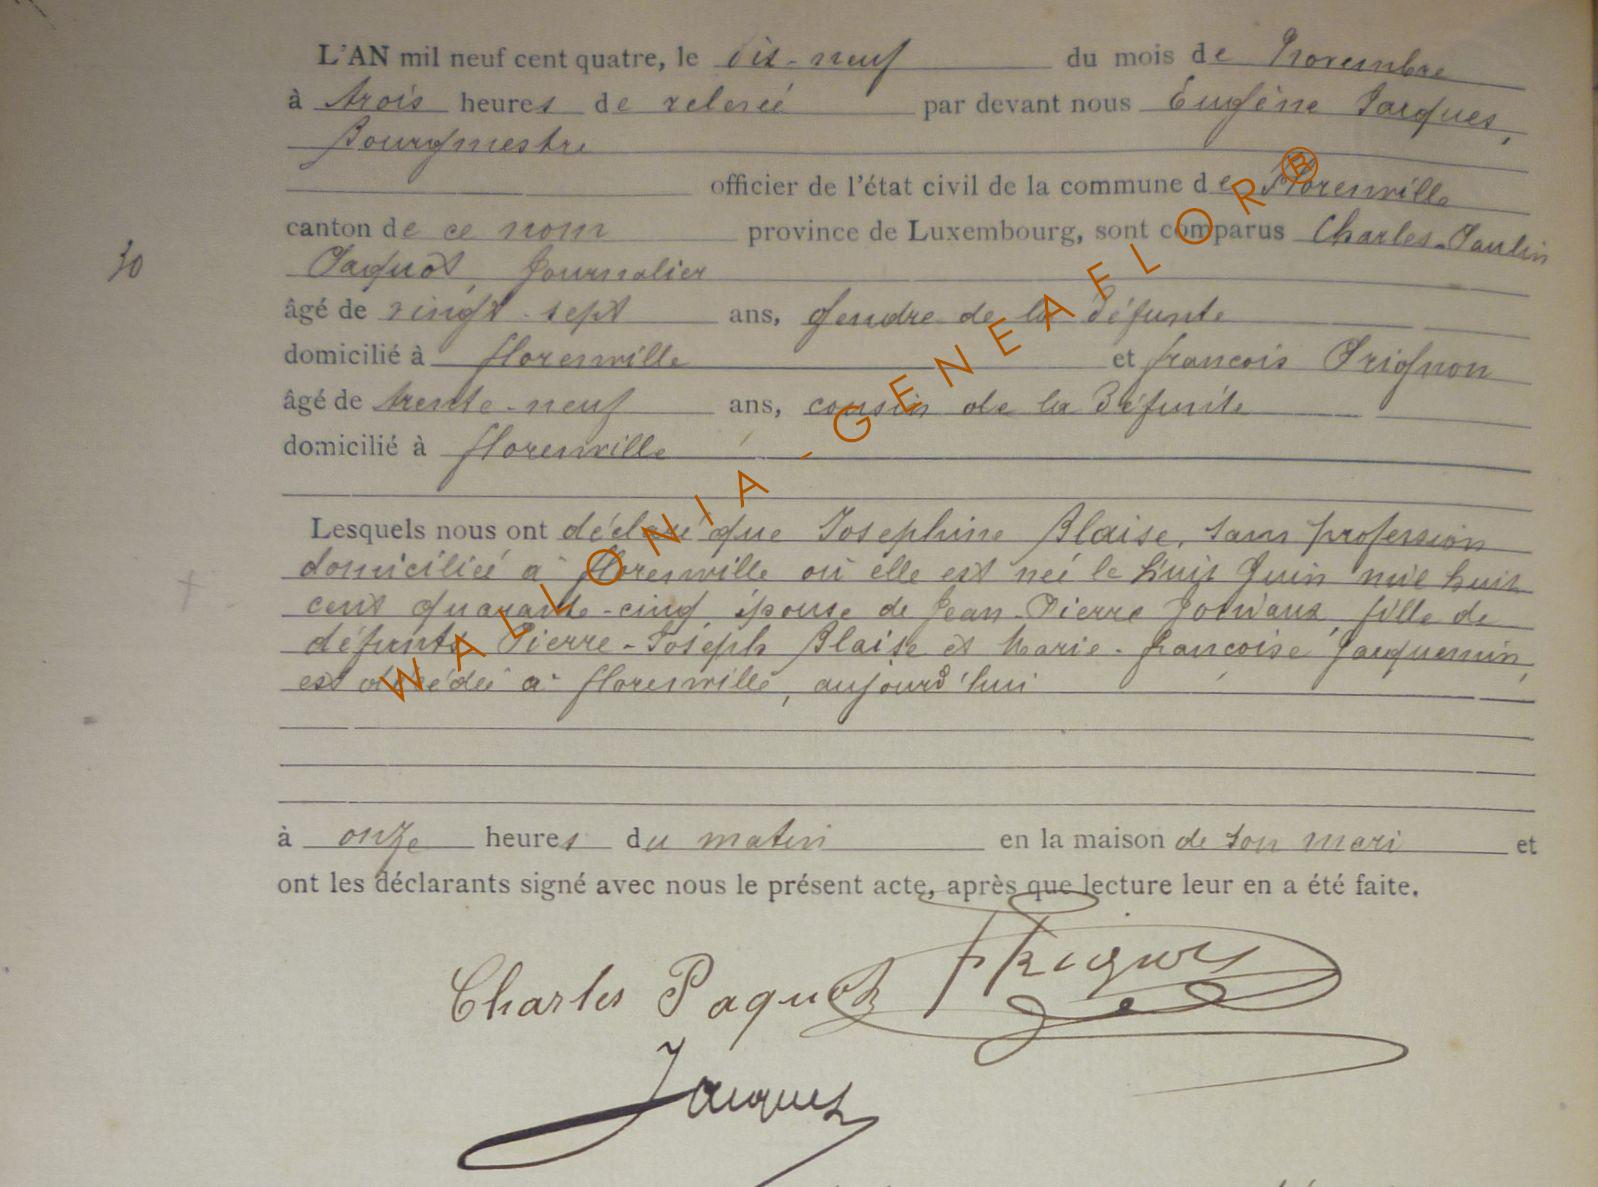 L'AN mil neuf cent quatre, le dix-neuf du mois de Novembre
à trois heures de relevée par devant nous Eugène Jacques,
Bourgmestre
officier de l'état civil de la commune de Florenville
canton de ce nom province de Luxembourg, sont comparus Charles-Paulin
30
Paquot, Journalier
âgé de vingt-sept ans, gendre de la défunte
domicilié à florenville et françois Prignon
âgé de trente-neuf ans, cousin de la défunte
domicilié à florenville
Lesquels nous ont déclaré que Josephine Blaise, sans profession
domiciliée à florenville où elle est née le huit Juin mil huit
cent quarante-cinq, épouse de Jean-Pierre, fille de
défunts Pierre-Joseph Blaise et Marie-françoise Jacquemin,
est décédée à florenville, aujourd'hui
à onze heures du matin en la maison de son mari et
ont les déclarants signé avec nous le présent acte, après que lecture leur en a été faite.
Charles Paquot
Jacques
WALLONIA-GENEAFLOR®